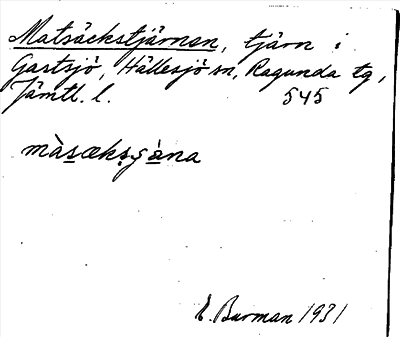 Matsäckstjärnen, tjärn i
Gastsjö, Hällesjö sn, Ragunda tg,
Jämtl. l. 545
màsækșșàna
E. Burman 1931